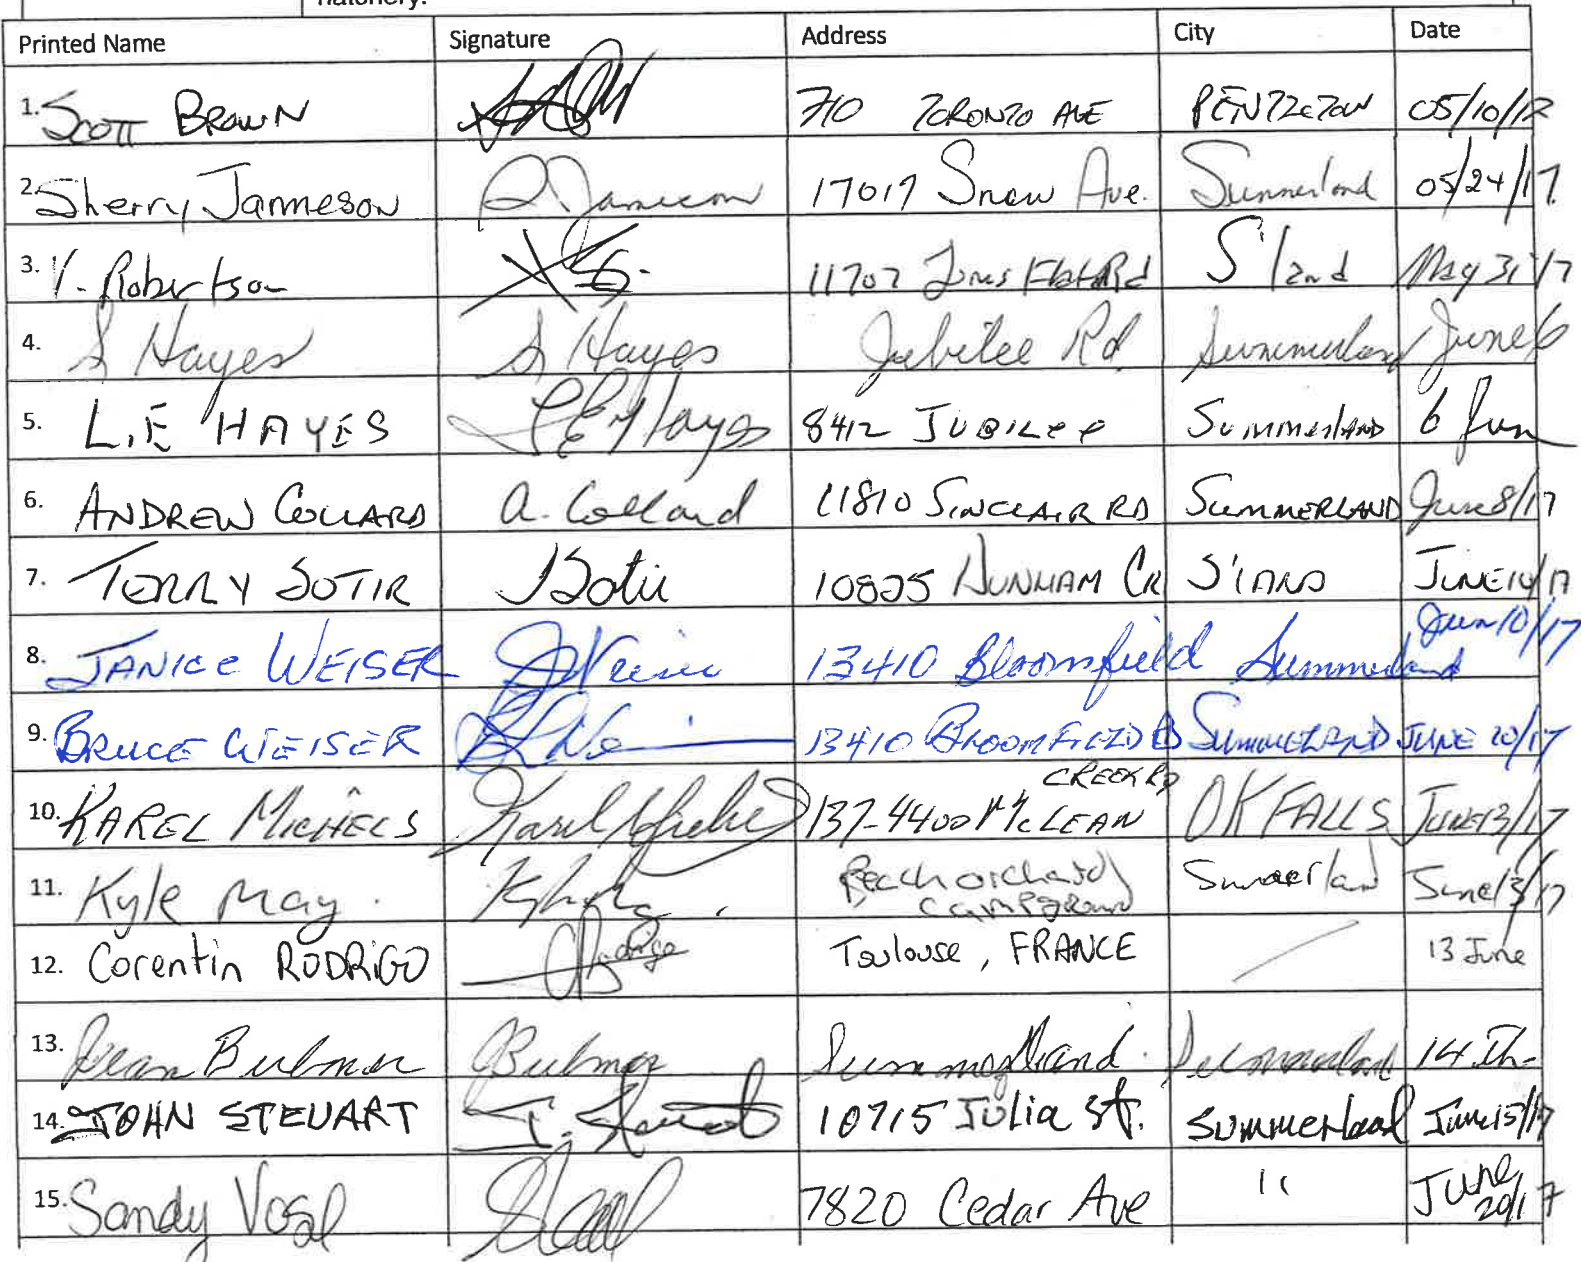 hatchery.
Printed Name Signature Address City Date
1. SCOTT BROWN 710 TORONTO AVE PENTICTON 05/10/17
2. Sherry Jammeson S. Jamieson 17017 Snow Ave. Summerland 05/24/17
3. V. Robertson 11707 Jones Flat Rd S'land May 31/17
4. S Hayes S Hayes Jubilee Rd Summerland June 6
5. L.E HAYES LE Hayes 8412 JUBILEE SummerlAND 6 Jun
6. ANDREW COLLARD A. Collard 11810 SINCLAIR RD SUMMERLAND June 8/17
7. TERRY SOTIR Sotir 10825 DUNHAM CR S'LAND JUNE 10/17
8. JANICE WEISER J Weiser 13410 Bloomfield Summerland Jun 10/17
9. BRUCE WEISER 13410 BLOOMFIELD SUMMERLAND JUNE 10/17
CREEK RD
10. KAREL MICHELS Karel Michels 137-4400 McLEAN OK FALLS JUNE 13/17
11. Kyle May. Peach orchard Summerland June 13/17
campground
12. Corentin RODRIGO Toulouse, FRANCE 13 June
13. Jean Bulmer Bulmer Summerland Summerland 14 Th-
14. JOHN STEUART J. Steuart 10715 Julia St. Summerland June 15/17
15. Sandy Vogl 7820 Cedar Ave " June
20/17